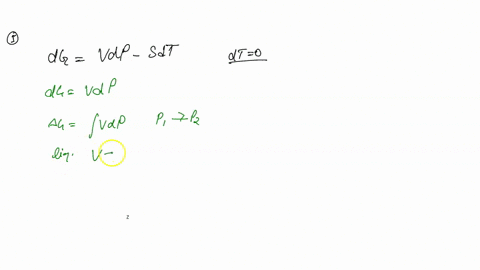 5
dG = VdP - SdT dT=0
dG = VdP
ΔG = ∫VdP P₁ → P₂
liq. V -
2